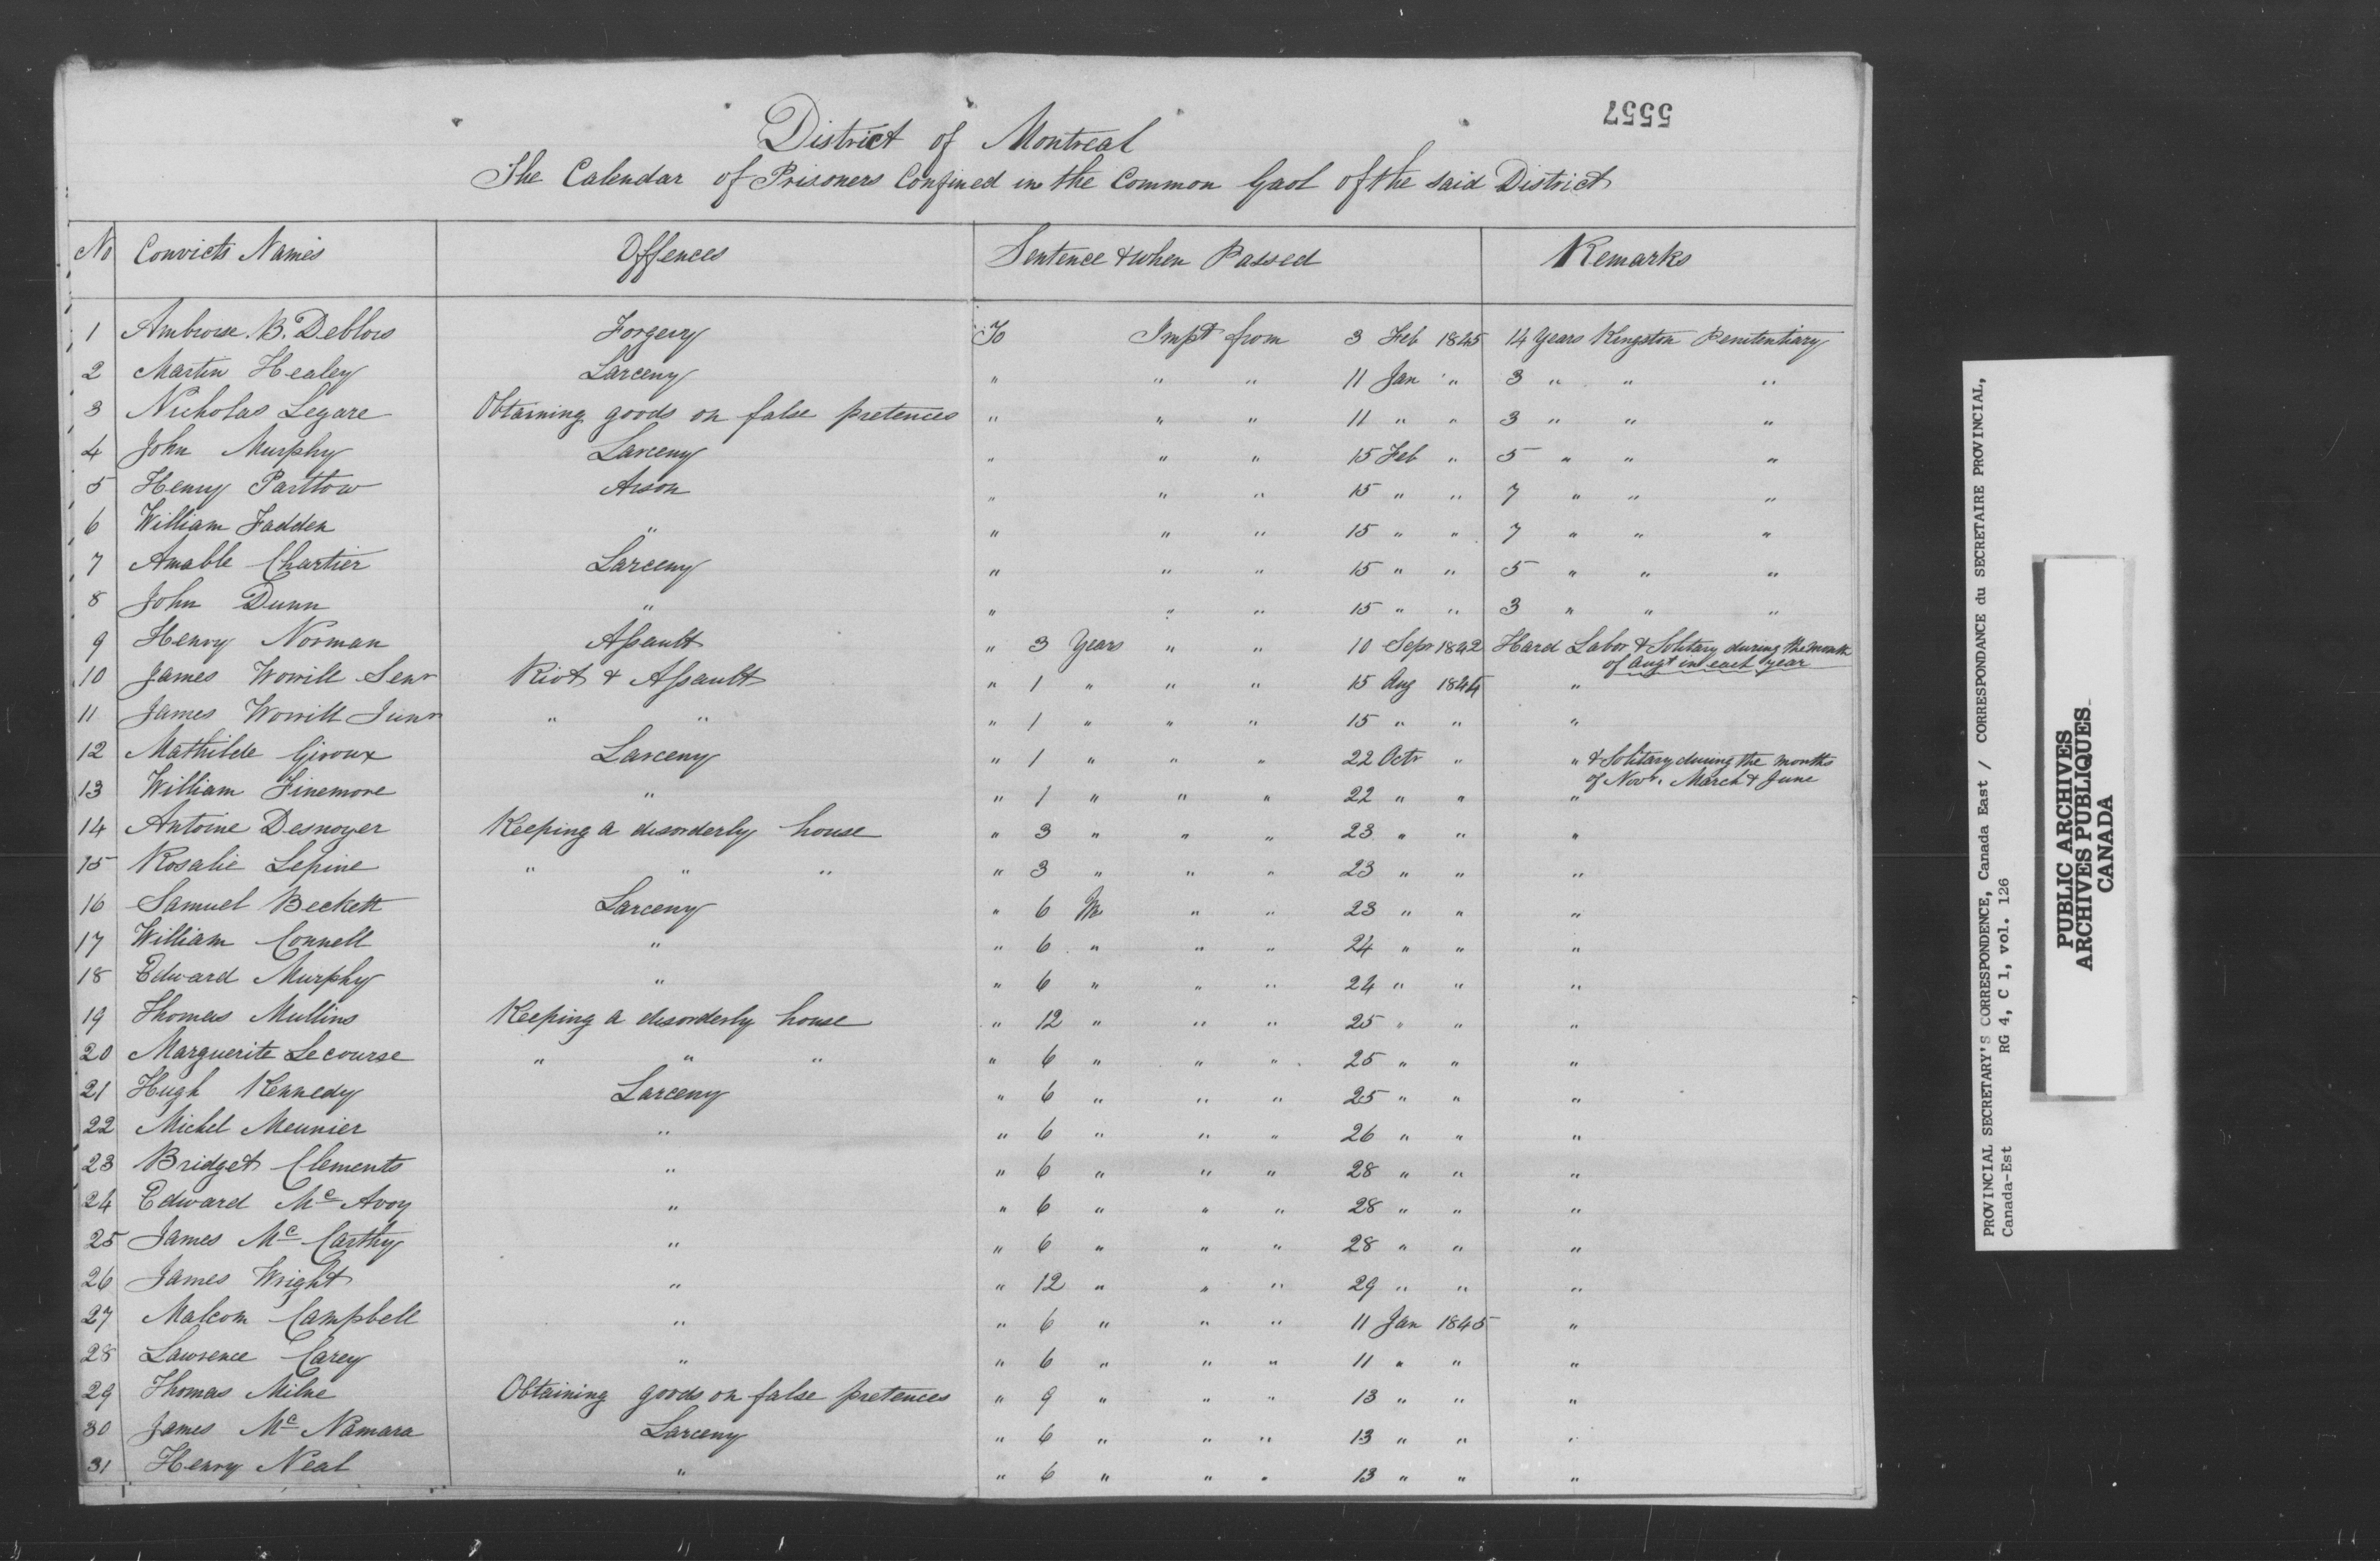 5557
District of Montreal
The Calendar of Prisoners Confined in the Common Gaol of the said District
No Convicts Names Offences Sentence & when Passed Remarks
1 Ambroise. B. Deblois Forgery To Impt from 3 Feb 1845 14 Years Kingston Penitentiary
2 Martin Healey Larceny " " " 11 Jan " 3 " " "
3 Nicholas Legare Obtaining goods on false pretences " " " 11 " " 3 " " "
4 John Murphy Larceny " " " 15 Feb " 5 " " "
5 Henry Parttow Arson " " " 15 " " 7 " " "
6 William Fadden " " " " 15 " " 7 " " "
7 Amable Chartier Larceny " " " 15 " " 5 " " "
8 John Dunn " " " " 15 " " 3 " " "
9 Henry Norman Assault " 3 Years " " 10 Sepr 1842 Hard Labor & Solitary during the month
of Augt in each year
10 James Worrill Senr Riot & Assault " 1 " " " 15 Aug 1844 "
11 James Worrill Junr " " " 1 " " " 15 " " "
12 Mathilde Giroux Larceny " 1 " " " 22 Octr " " & Solitary during the months
of Novr. March & June
13 William Finemore " " 1 " " " 22 " " "
14 Antoine Desnoyer Keeping a disorderly house " 3 " " " 23 " " "
15 Rosalie Lepine " " " " 3 " " " 23 " " "
16 Samuel Beckett Larceny " 6 Ms " " 23 " " "
17 William Connell " " 6 " " " 24 " " "
18 Edward Murphy " " 6 " " " 24 " " "
19 Thomas Mullins Keeping a disorderly house " 12 " " " 25 " " "
20 Marguerite Lecourse " " " " 6 " " " 25 " " "
21 Hugh Kennedy Larceny " 6 " " " 25 " " "
22 Michel Meunier " " 6 " " " 26 " " "
23 Bridget Clements " " 6 " " " 28 " " "
24 Edward Mc Avoy " " 6 " " " 28 " " "
25 James Mc Carthy " " 6 " " " 28 " " "
26 James Wright " " 12 " " " 29 " " "
27 Malcom Campbell " " 6 " " " 11 Jan 1845 "
28 Lawrence Carey " " 6 " " " 11 " " "
29 Thomas Milne Obtaining goods on false pretences " 9 " " " 13 " " "
30 James Mc Namara Larceny " 6 " " " 13 " " "
31 Henry Neal " " 6 " " " 13 " " "
PROVINCIAL SECRETARY'S CORRESPONDENCE, Canada East / CORRESPONDANCE du SECRETAIRE PROVINCIAL,
Canada-Est RG 4, C 1, vol. 126
PUBLIC ARCHIVES
ARCHIVES PUBLIQUES
CANADA